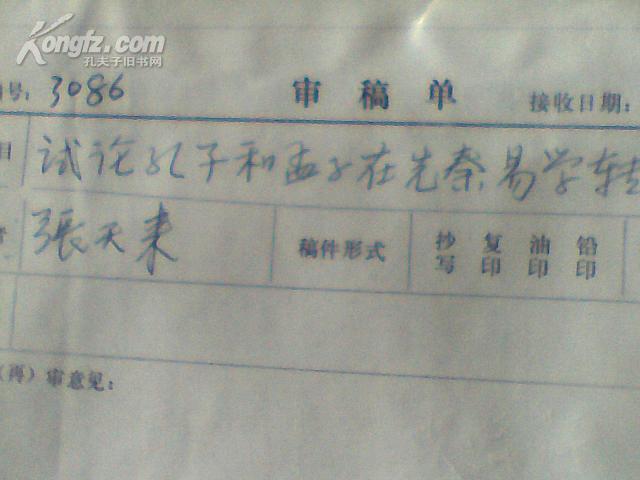 Kongfz.com
孔夫子旧书网
号：3086 审稿单 接收日期：
试论孔子和孟子在先秦易学转
張天来 稿件形式 抄写 复印 油印 铅印
（再）审意见：